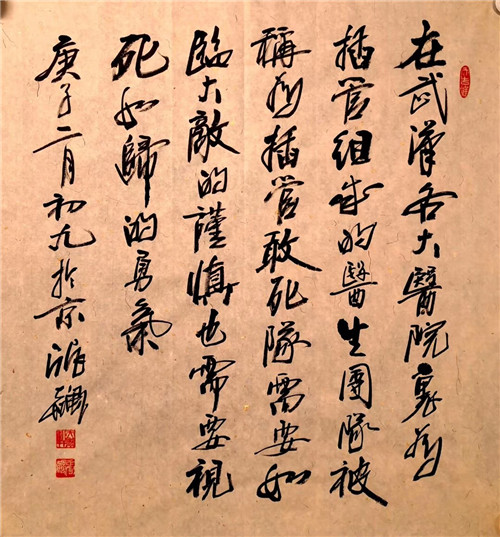 在武漢各大醫院裏为
插管組成的醫生團隊被
稱为插管敢死隊需要如
臨大敵的謹慎也需要視
死如歸的勇氣
庚子二月初九於京